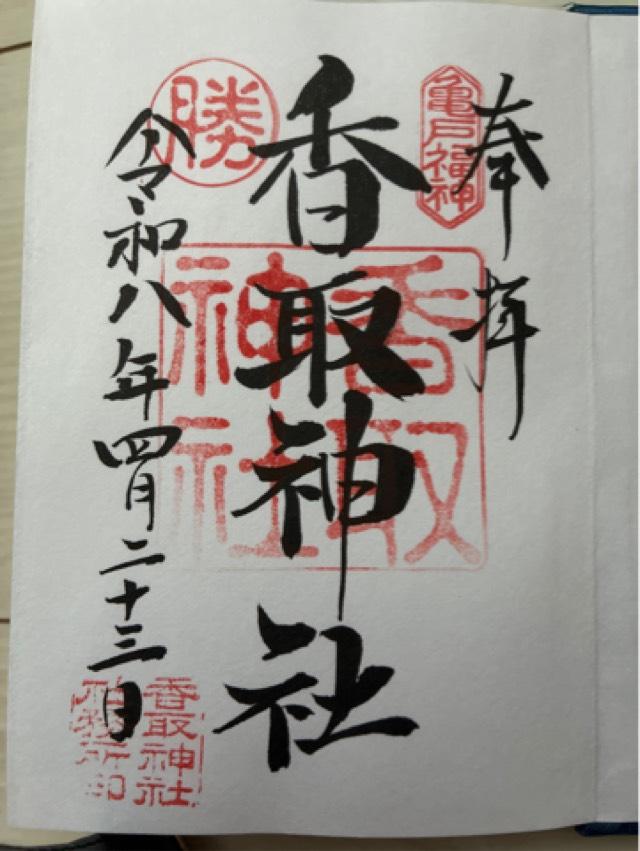 奉拝
亀戸福神
香取神社
香取神社
勝
令和八年四月二十三日
香取神社
社務所印